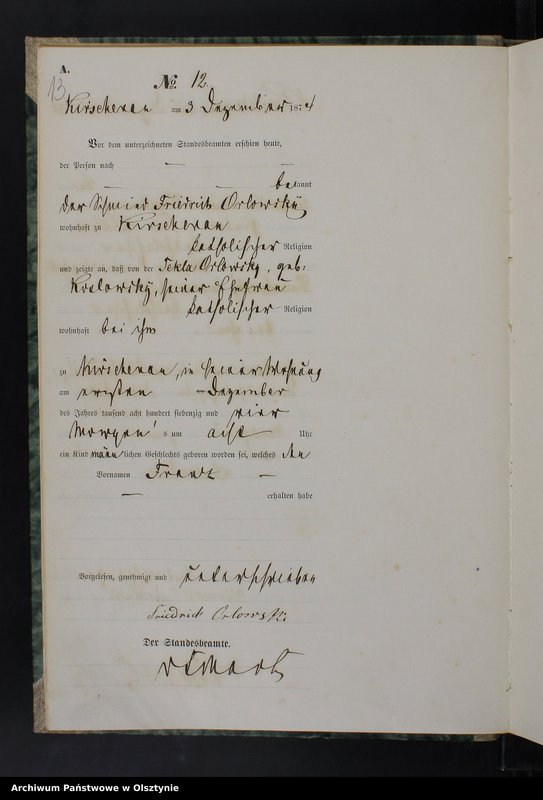 A.
13
No. 12.
Kirschenau am 3 Dezember 1874
Vor dem unterzeichneten Standesbeamten erschien heute,
der Person nach
bekannt
der Schmied Friedrich Orlowsky
wohnhaft zu Kirschenau
katholischer Religion
und zeigte an, daß von der Tekla Orlowsky, geb:
Koslowsky, seiner Ehefrau
katholischer Religion
wohnhaft bei ihm
zu Kirschenau, in seiner Wohnung
am ersten Dezember
des Jahres tausend acht hundert siebenzig und vier
Morgens um acht Uhr
ein Kind männlichen Geschlechts geboren worden sei, welches den
Vornamen Franz
erhalten habe
Vorgelesen, genehmigt und unterschrieben
Friedrich Orlowski
Der Standesbeamte.
Archiwum Państwowe w Olsztynie